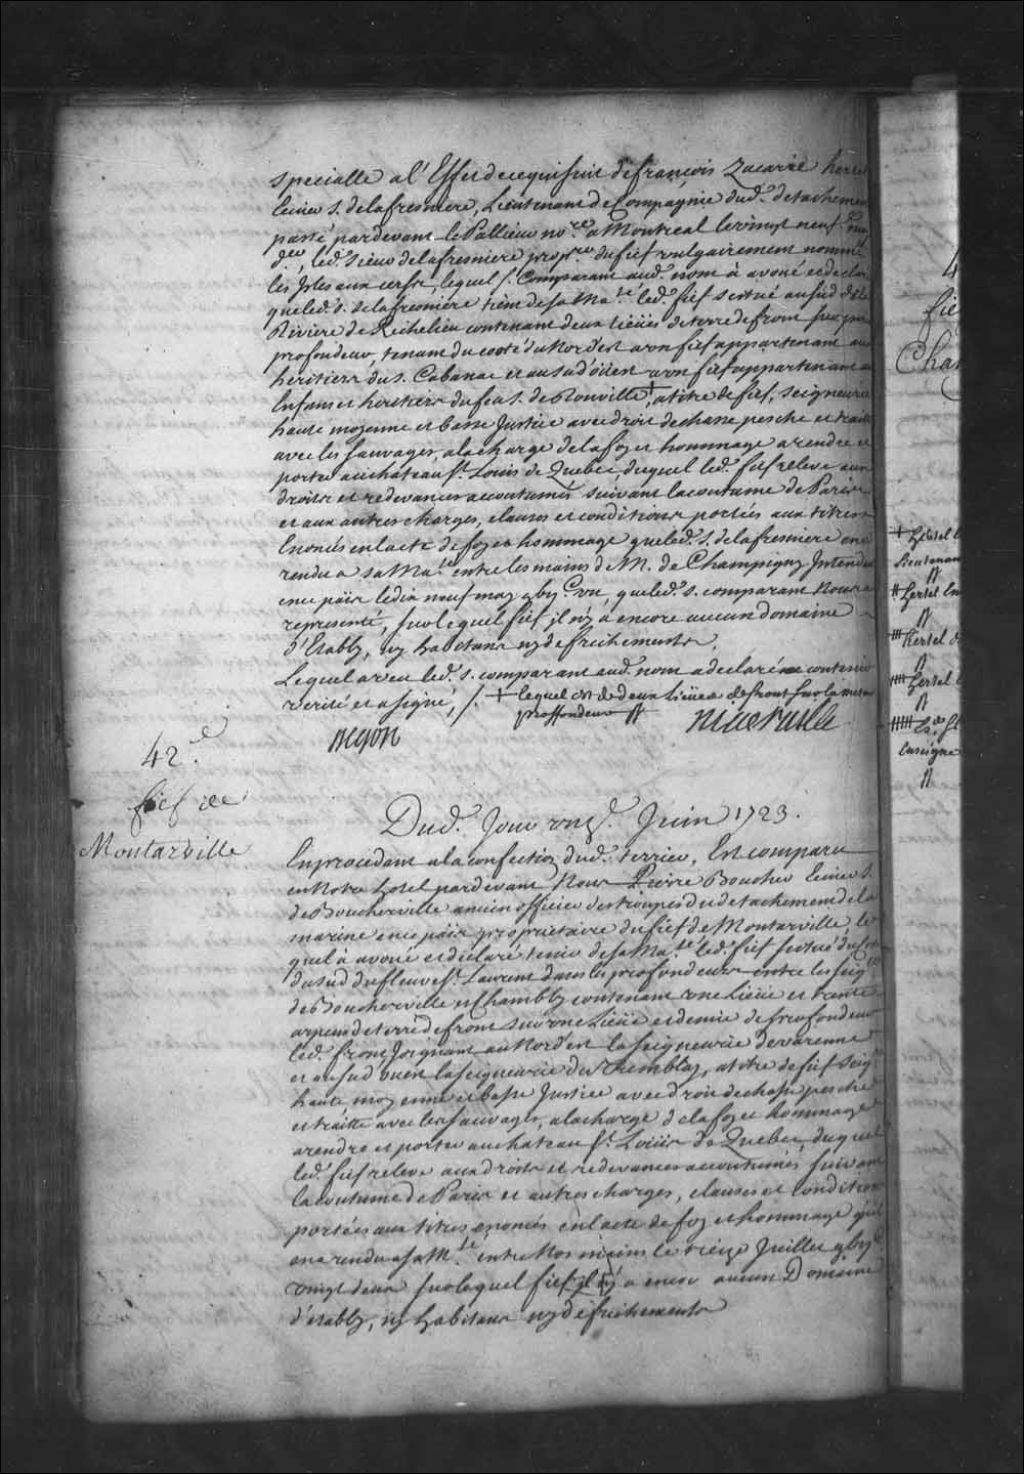 specialle a l'Effet de ce qui suit de françois Zacarie hertel
Ecuier S. de lafresniere, Lieutenant de Compagnie dud. detachement
passé pardevant lePallieur no.re a Montreal le vingt neuf may
d.er, led. Sieur de lafresniere propre du fief vulgairement nommé
les Isles aux cerfs, lequel S. Comparant aud. nom à avoué et declaré
que led. S. de lafresniere tient de sa Ma.té led. fief scitué au sud de la
Riviere de Richelieu contenant deux liëües de terre de front sur
profondeur, tenant du costé du Nord'est a un fief appartenant aux
heritiers du S. Cabanac et au sud'öüest a un fief appartenant aux
Enfans et heritiers du feu S. de Rouville + a titre de fief, seigneurie
haute moyenne et basse Justice avec droit de chasse pesche et traitte
avec les sauvages, a la charge de la foy et hommage a rendre et
porter au chateau S.t Louis de Quebec, duquel led. fief releve aux
droits et redevances accoutumés suivant la coutume de Paris
et aux autres charges, clauses et conditions portées aux titres
Enoncés en l'acte de foy et hommage que led. S. de lafresniere en a
rendu a sa Ma.té entre les mains de M. de Champigny Intendant
en ce päis le dix neuf may g bij.c un, que led. S. comparant Nous a
representé, sur lequel fief il n'y à encore aucun domaine
d'Etably, ny habitans ny defrichements.
Lequel aveu led. S. comparant aud. nom a declaré contenir
verité et a signé, /. + lequel est de deux liëües de front sur la mesme
proffondeur
Begon
Niverville
42.e
fief de
Montarville
Dud. Jour onz.e Juin 1723.
En procedant a la confection dud. terrier, Est comparu
en Notre hotel pardevant Nous Pierre Boucher Ecuier S.
de Boucherville ancien officier des troupes du detachement de la
marine en ce päis proprietaire du fief de Montarville, le
quel à avoué et declaré tenir de sa Ma.té led. fief scitué du costé
du sud du fleuve S.t Laurent dans les profondeurs entre les seig.ries
de Boucherville et Chambly contenant une Liëüe et trente
arpens de terre de front sur une Liëüe et demie de profondeur
led. front Joignant au Nord'est la seigneurie de varenne
et au sud ouest la seigneurie du Tremblay, a titre de fief seig.rie
haute moyenne et basse Justice avec droit de chasse pesche
et traitte avec les sauvages, a la charge de la foy et hommage
a rendre et porter au chateau S.t Loüis de Quebec, duquel
led. fief releve aux droits et redevances accoutumés suivant
la coutume de Paris et autres charges, clauses et conditions
portées aux titres enoncés en l'acte de foy et hommage qu'il
en a rendu a sa M.té entre Nos mains le treize Juillet g bij.c
vingt deux sur lequel fief il n'y a encor aucun Domaine
d'etably, ny habitans ny defrichements
fief
Cham
+ hertel
Lieutenant
# hertel
### hertel
#### hertel
Enseigne